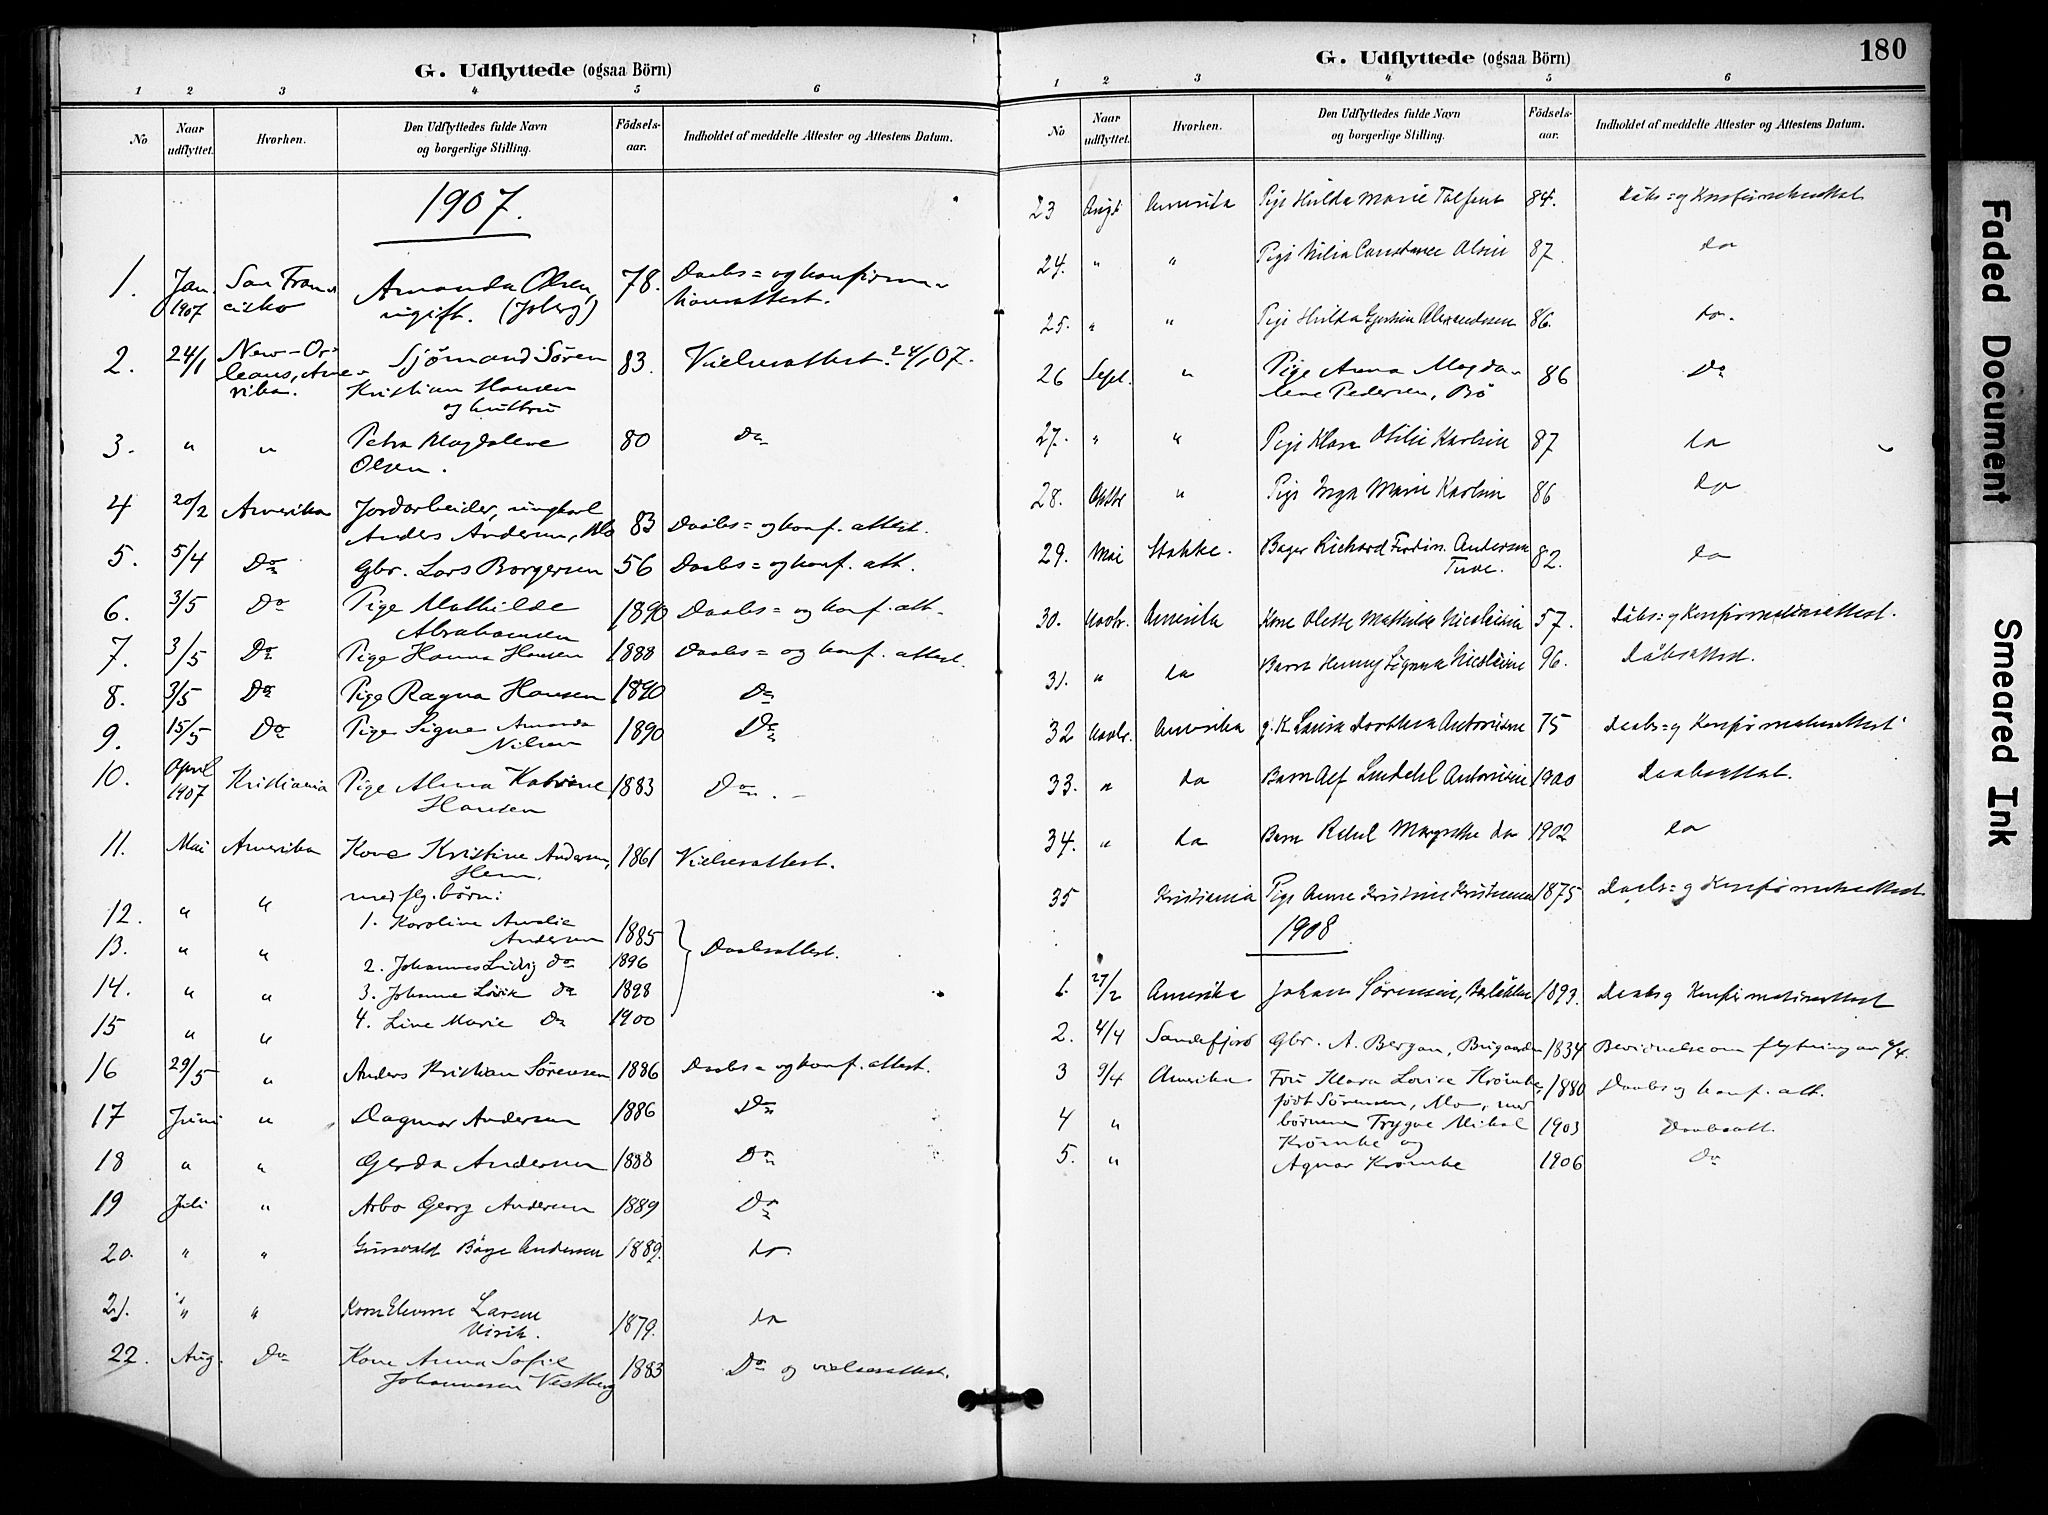 G. Udflyttede (ogsaa Börn)
1 2 3 4 5 6
No Naar udflyttet. Hvorhen. Den Udflyttedes fulde Navn og borgerlige Stilling. Födselsaar. Indholdet af meddelte Attester og Attestens Datum.
1907.
1. Jan. 1907 San Francisko Amanda Olsen, ugift. (Joberg) 78. Daabs= og konfirmationsattest.
2. 24/1 New-Orleans, Amerika. Sjømand Søren Kristian Hansen og hustru 83. Vielsesattest. 24/1 07.
3. " " Petra Magdalene Olsen. 80 Do
4 20/2 Amerika Jordarbeider, ungkarl Anders Andersen, Mo 83 Daabs= og konf. attest.
5. 5/4 Do Gbr. Lars Borgersen 56 Daabs= og konf. att.
6. 3/5 Do Pige Mathilde Abrahamsen 1890 Daabs= og konf. att.
7. 3/5 Do Pige Hanna Hansen 1888 Daabs= og konf. attest.
8. 3/5 Do Pige Ragna Hansen 1890 Do
9. 15/5 Do Pige Signe Amanda Nilsen 1890 Do
10. April 1907 Kristiania Pige Alma Katrine Hansen 1883 Do
11. Mai Amerika Kone Kristine Andersen, Hem. 1861 Vielsesattest.
med flg. børn:
12. " " 1. Karoline Amalie Andersen 1885
13. " " 2. Johannes Ludvig Do 1896 Daabsattest.
14. " " 3. Johanne Lovise Do 1898
15 " " 4. Line Marie Do 1900
16 29/5 " Anders Kristian Sørensen 1886 Daabs= og konf. attest.
17 Juni " Dagmar Andersen 1886 Do
18 " " Gerda Andersen 1888 Do
19 Juli " Arbo Georg Andersen 1889 Do
20. " " Gunvald Børge Andersen 1889. do.
21. " " Kone Larsen Virik. 1879. do
22. Aug. Do Kone Anna Sofie Johannesen Vestberg 1883 Do og vielsesattest.
180
G. Udflyttede (ogsaa Börn)
1 2 3 4 5 6
No Naar udflyttet. Hvorhen. Den Udflyttedes fulde Navn og borgerlige Stilling. Födselsaar. Indholdet af meddelte Attester og Attestens Datum.
23 Augt Amerika Pige Hilda Marie 84. Dåbs= og Konfirmationsattest
24. " " Pige Constance Olsen 87. do
25. " " Pige Hilda Alexandersen 86. do.
26 Sept. " Pige Anna Magdalene Pedersen, Bø 86 Do
27. " " Pige Klara Otilie Karlsen 87 do
28. Oktbr " Pige Inga Marie Karlsen 86 do
29. Mai Stokke. Bager Richard Ferdin. Andersen 82. do
30. Novbr. Amerika Kone Olette Mathilde Nicolaisen 57. Dåbs= og Konfirmationsattest.
31. " do Barn Henny Signora Nicolaisen 96. Dåbsattest.
32 Novbr. Amerika g. K. Lovise Dorthea Antonisen 75 Daabs= og Konfirmationsattest
33. " do Barn Alf Antonisen 1900 Daabsattest.
34. " do Barn Margrethe do 1902 do
35 Kristiania Pige Anne Kristine Kristensen 1875 Daabs= og Konfirmationsattest
1908
1. 27/2 Amerika Johan Sørensen, 1893. Daabs og Konfirmationsattest
2. 4/4 Sandefjord Gbr. A. Bergan, Bugaarden 1834 Bevidnelse om flytning av 4/4.
3 9/4 Amerika Fru Klara Lovise Krömke, født Sørensen, Mo, med 1880 Daabs og konf. att.
4 " børnene Trygve Mikal Krömke og 1903 Daabsatt.
5. " Agnar Krömke 1906 Do
Faded Document
Smeared Ink